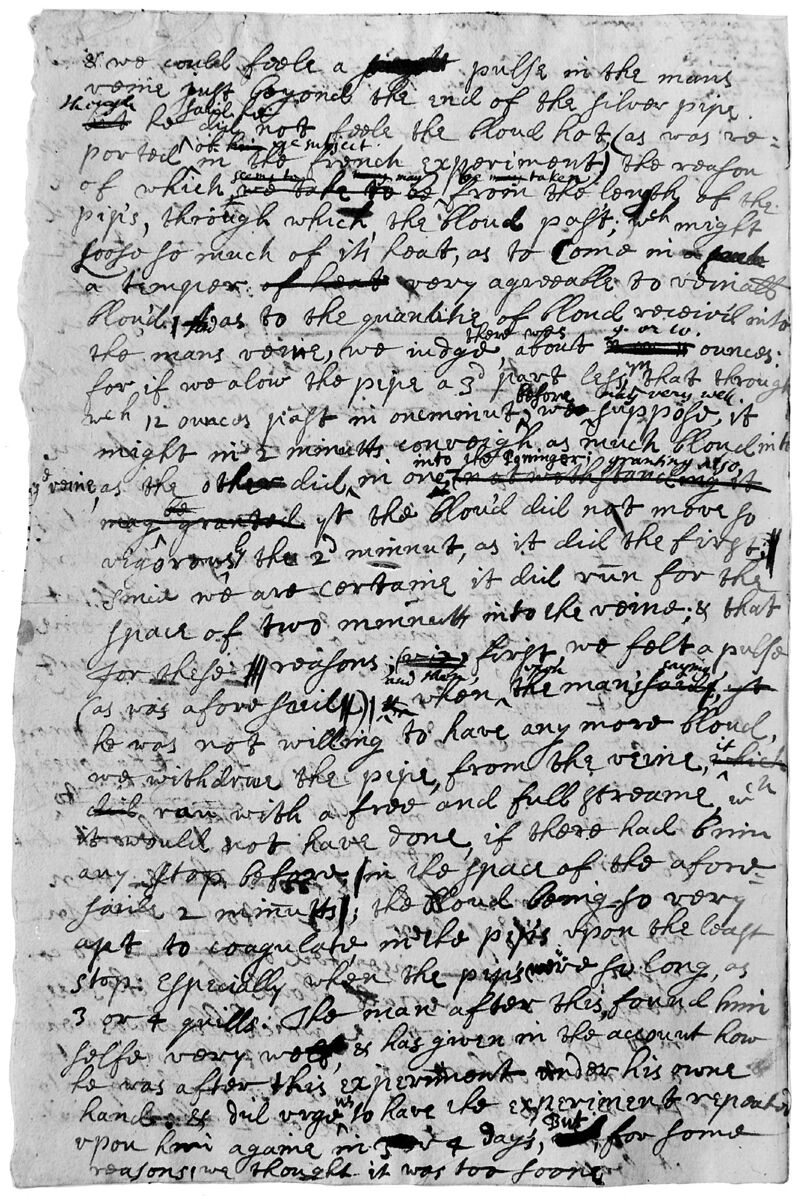 & we could feele a pulse in the mans
veine just beyond the end of the silver pipe
though said he
he did not feele the bloud hot (as was re=
of subject
ported in the french experiment) the reason
seems to be may be taken
of which we take to be from the length of the
pips, through which the bloud past, wch might
loose so much of its heat, as to come in
a temper of heat very agreeable to veinall
bloud. as to the quantitie of bloud receivd into
there was 9. or 10.
the mans veine, we judge about ounces:
for if we alow the pipe a 3d part less, that through
before may very well
wch 12 ounces past in one minut, we suppose, it
might in 2 minutts conveigh as much bloud into
into the Porringer; granting also,
ye veine, as the other did in one notwithstanding it
be
may granted yt the bloud did not move so
vigorously the 2d minnut, as it did the first;
since we are certaine it did run for the
space of two minnutts into the veine; & that
for these reasons, first we felt a pulse
and then upon saying
(as was afore said) when the man said, yt
he was not willing to have any more bloud,
it
we withdrue the pipe, from the veine, which
did run with a free and full streame, wch
it would not have done, if there had binn
any stop before, in the space of the afore=
said 2 minutts; the bloud being so very
apt to coagulate in the pips upon the least
stop: especially when the pips were so long, as
3 or 4 quills. The man after this, found him
selfe very well, & has given in the account how
he was after this experiment under his owne
us
hand: & did urge to have the experiment repeated
But
upon him againe in 3 or 4 days, for some
reasons we thought it was too soone